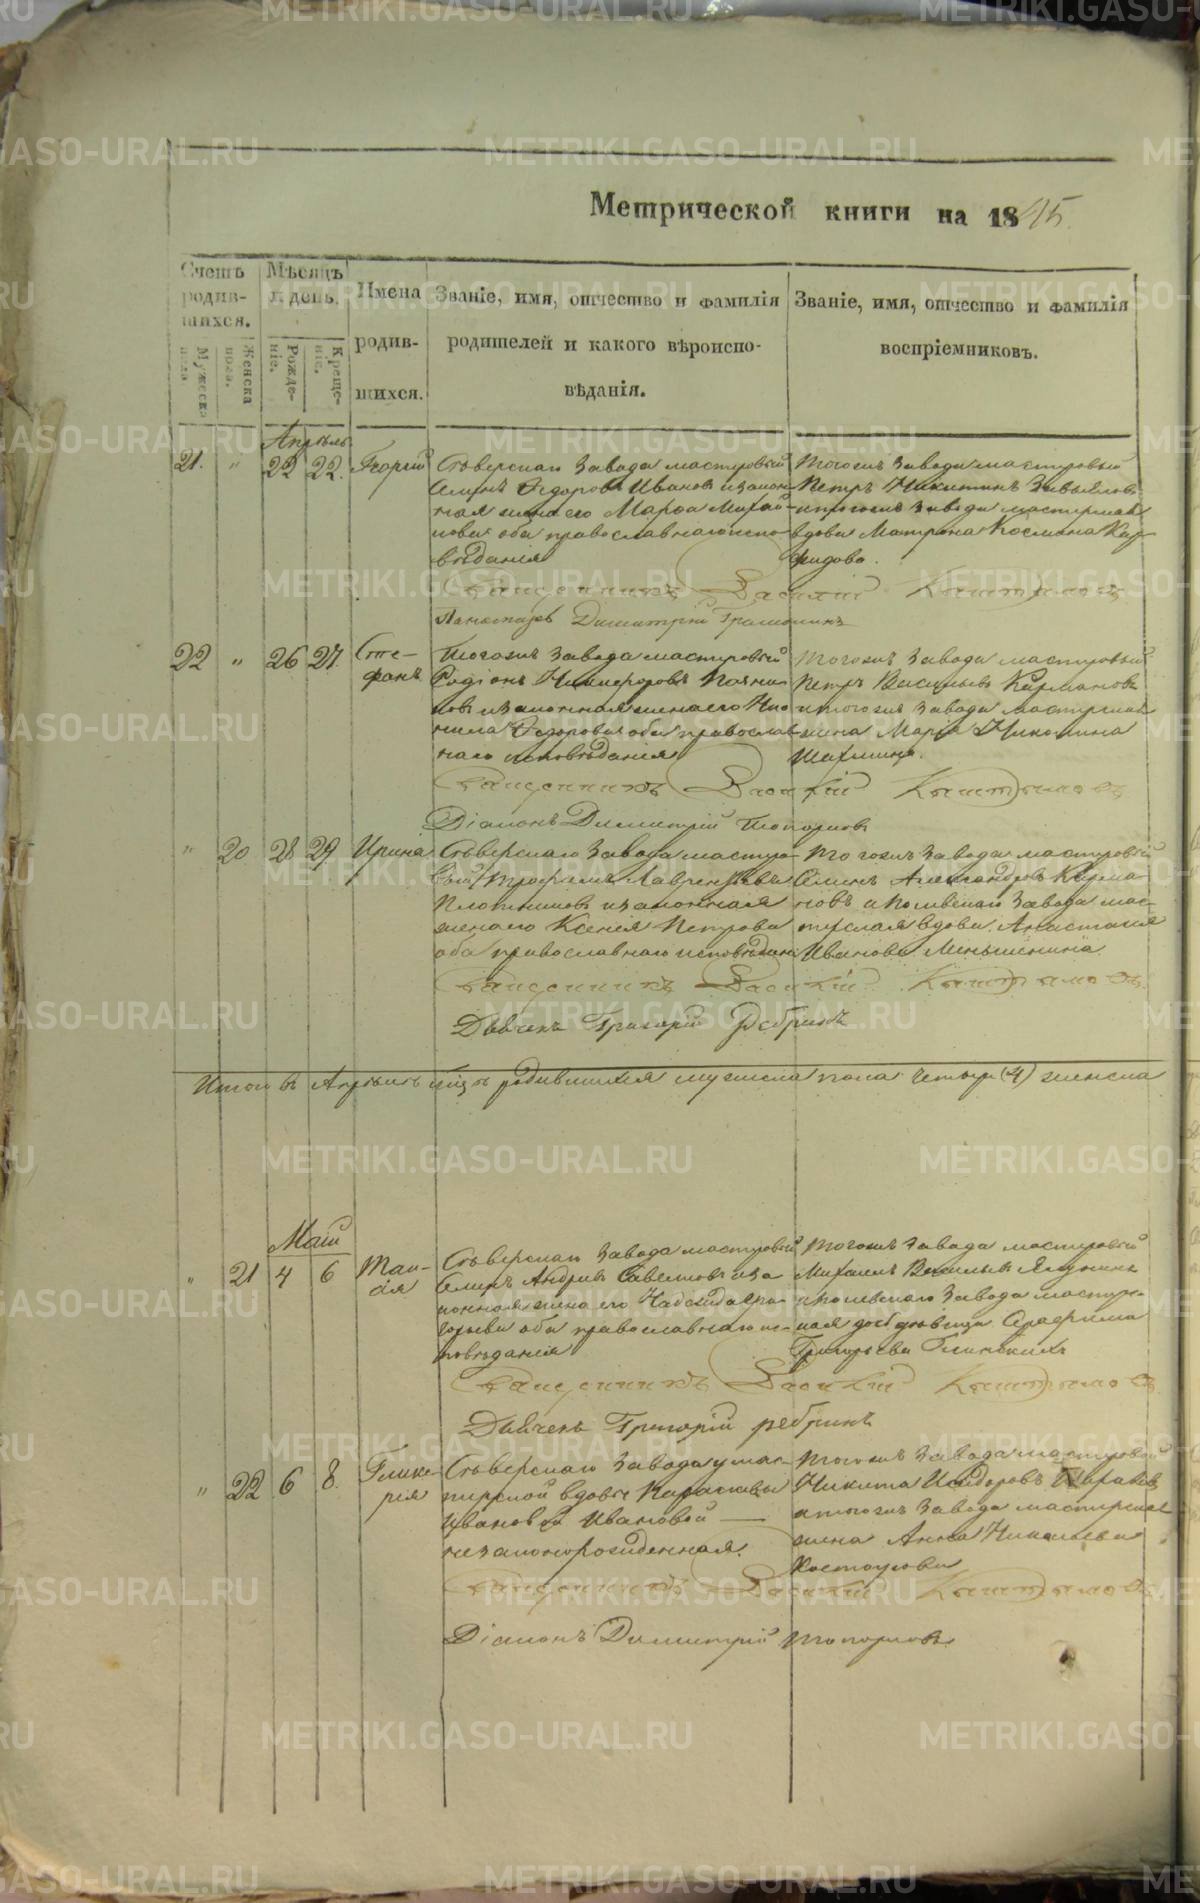 Метрической книги на 1845.
Счетъ родив-шихся.
Мужеска пола.
Женска пола.
Мѣсяцъ и день.
Рожде-ніе.
Креще-ніе.
Имена родив-шихся.
Званіе, имя, отчество и фамилія
родителей и какого вѣроиспо-
вѣданія.
Званіе, имя, отчество и фамилія
воспріемниковъ.
Апрѣль
21. " 22 22. Георгій
Сѣверскаго Завода мастеровый
Ѳедоровъ Ивановъ и закон-
ная жена его Марѳа Михай-
лова оба православнаго испо-
вѣданія
Тогожъ Завода мастеровый
Петръ Никитинъ Завьяловъ
и тогожъ Завода мастерская
вдова Матрона Космина
Священникъ Василій Кыштымовъ
Димитрій
22 " 26 27. Сте-
фанъ
Тогожъ Завода мастеровый
Родіонъ Никифоровъ
и законная жена его Нео-
нила Ѳедорова оба православ-
наго исповѣданія
Тогожъ Завода мастеровый
Петръ Васильевъ Кармановъ
и тогожъ Завода мастерская
жена Марія Никитина
Священникъ Василій Кыштымовъ
Діаконъ Димитрій Топорковъ
" 20 28 29 Ирина
Сѣверскаго Завода мастеро-
вый Трофимъ Лаврентьевъ
Плотниковъ и законная
жена его Ксенія Петрова
оба православнаго исповѣданія
Тогожъ Завода мастеровый
Семенъ Александровъ Карма-
новъ и Полевскаго Завода мас-
терская вдова Анастасія
Иванова Меньшенина
Священникъ Василій Кыштымовъ
Дьячекъ Григорій Ребринъ
Итого въ Апрѣлѣ родившихся мужеска пола четыре (4) женска
Маій
" 21 4 6 Таи-
сія
Сѣверскаго Завода мастеровый
Андріевъ Савеловъ и за
конная жена его Надежда Гри-
горьева оба православнаго ис-
повѣданія
Тогожъ Завода мастеровый
Михаилъ Васильевъ
и Полевскаго Завода мастер-
ская дѣвица Серафима
Григорьева Глинскихъ
Священникъ Василій Кыштымовъ
Дьячекъ Григорій Ребринъ
" 22 6 8. Глике-
рія
Сѣверскаго Завода у мас-
терской вдовы Параскевы
Ивановой Ивановой —
незаконорожденная.
Тогожъ Завода мастеровой
Никита Исидоровъ
и тогожъ Завода мастерская
жена Анна Николаева
Костоусова
Священникъ Василій Кыштымовъ
Діаконъ Димитрій Топорковъ
METRIKI.GASO-URAL.RU